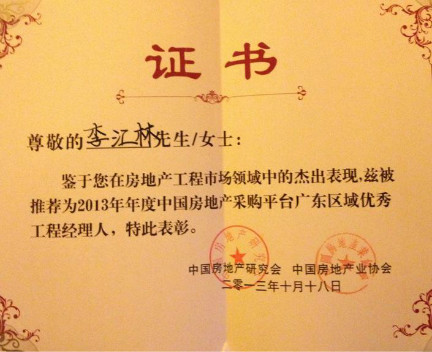 证书
尊敬的李汇林先生/女士：
鉴于您在房地产工程市场领域中的杰出表现,兹被
推荐为2013年年度中国房地产采购平台广东区域优秀
工程经理人，特此表彰。
中国房地产研究会 中国房地产业协会
二零一三年十月十八日